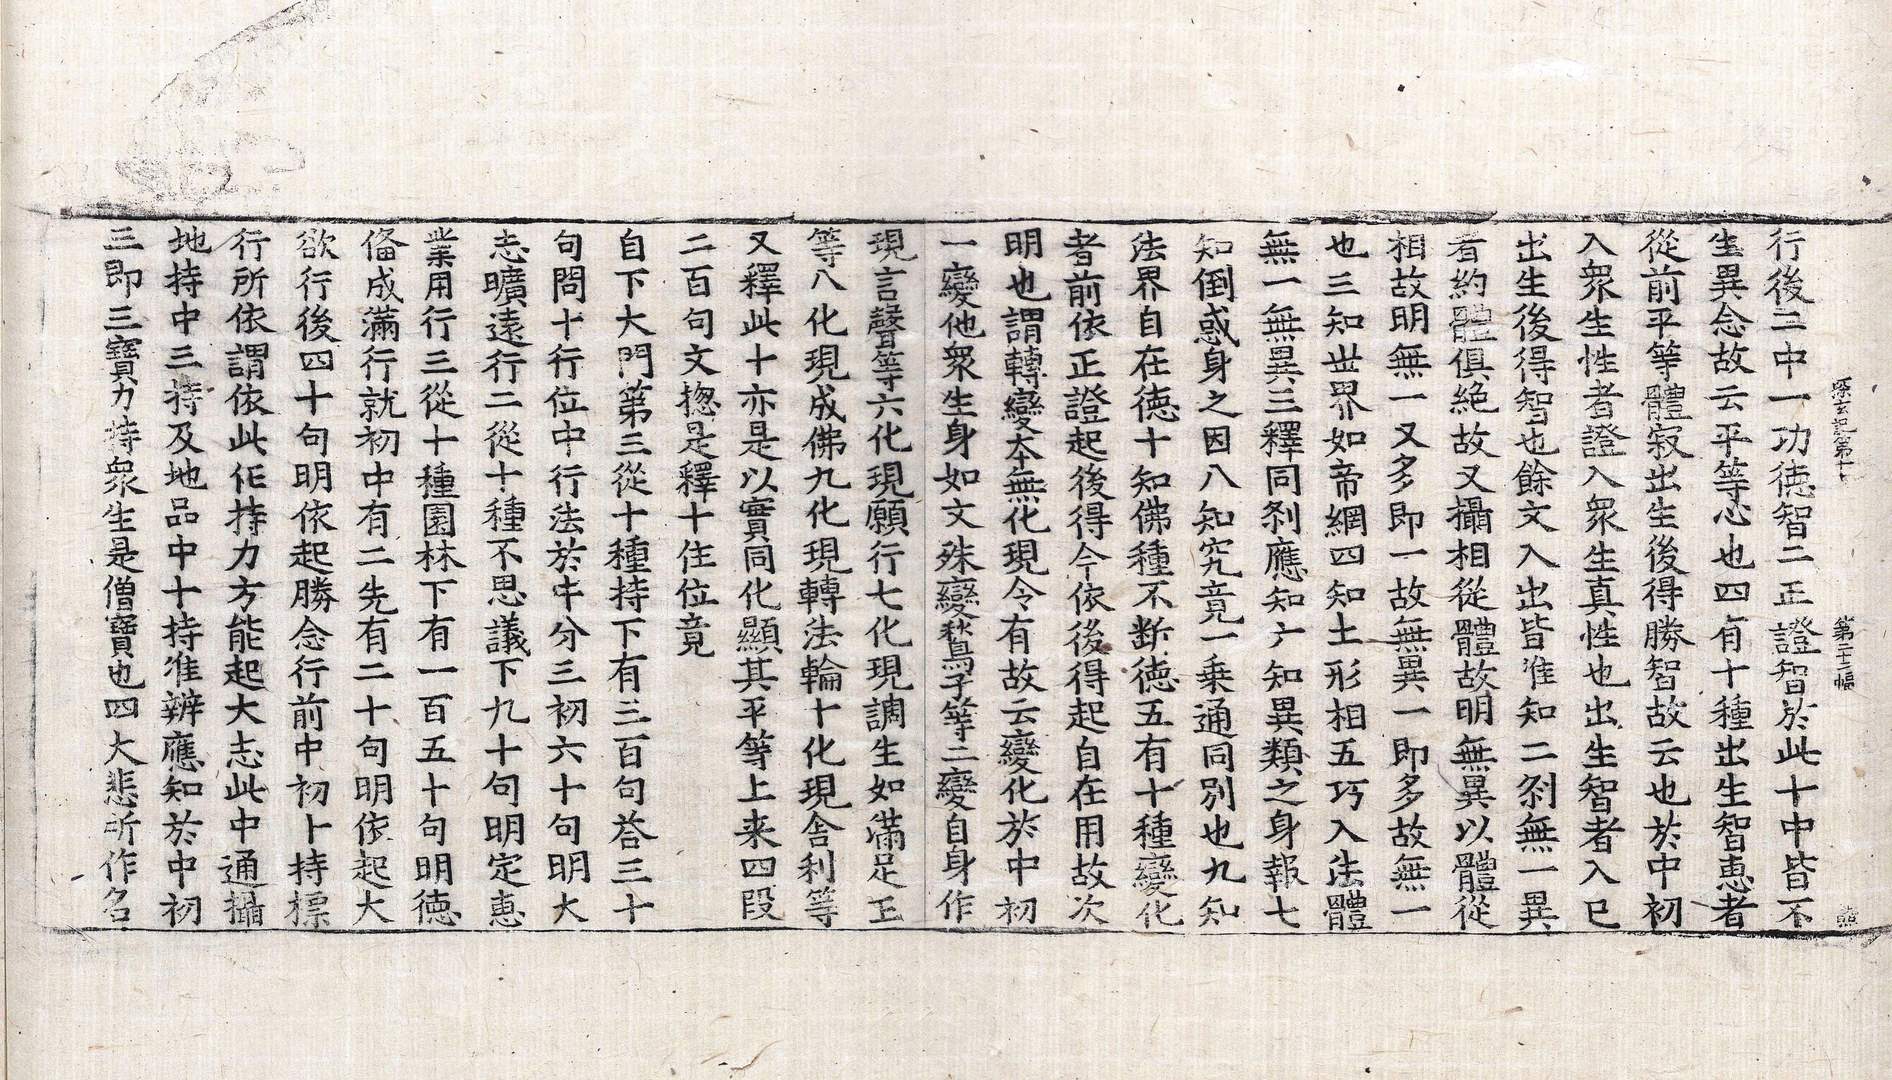 探玄記第十七　第二十二幅　㷼
行後二中一功德智二正證智於此十中皆不
生異念故云平等心也四有十種出生智惠者
從前平等體寂出生後得勝智故云也於中初
入衆生性者證入衆生真性也出生智者入已
出生後得智也餘文入出皆准知二刹無一異
者約體俱絶故又攝相從體故明無異以體從
相故明無一又多即一故無異一即多故無一
也三知世界如帝網四知土形相五巧入法體
無一無異三釋同刹應知六知異類之身報七
知倒惑身之因八知究竟一乗通同別也九知
法界自在德十知佛種不断德五有十種變化
者前依正證起後得今依後得起自在用故次
明也謂轉變本無化現令有故云變化於中初
一變他衆生身如文殊變鶖子等二變自身作
現言聲等六化現願行七化現調生如滿足王
等八化現成佛九化現轉法輪十化現舍利等
又釋此十亦是以實同化顯其平等上来四段
二百句文揔是釋十住位竟
自下大門第三從十種持下有三百句荅三十
句問十行位中行法於中分三初六十句明大
志曠遠行二從十種不思議下九十句明定惠
業用行三從十種園林下有一百五十句明德
俻成滿行就初中有二先有二十句明依起大
欲行後四十句明依起勝念行前中初十持標
行所依謂依此任持力方能起大志此中通攝
地持中三持及地品中十持准辨應知於中初
三即三寶力持衆生是僧寶也四大悲所作名